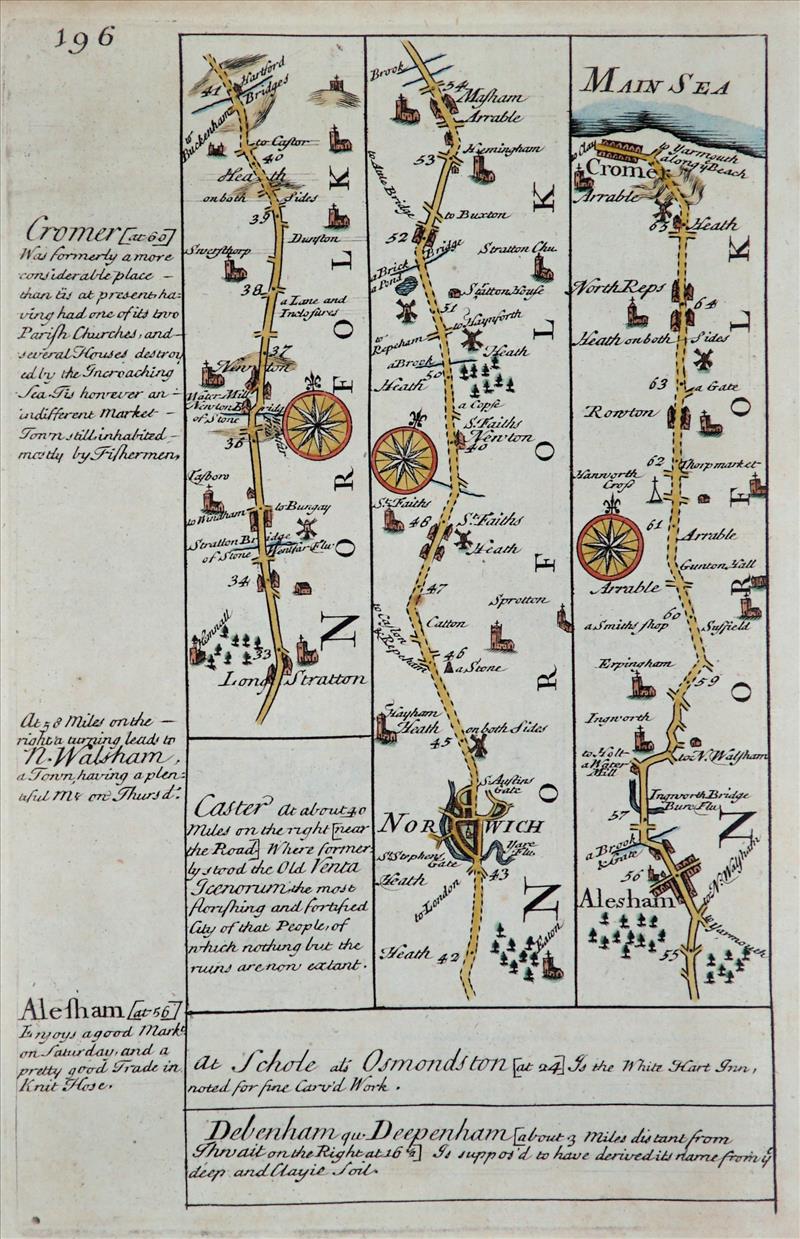 196
Cromer [at 60]
Was formerly a more
considerable place —
than tis at present, ha-
ving had one of its two
Parish Churches, and
several Houses destroy
ed by the Increaching
Sea. Tis however an —
indifferent Market —
Town still inhabited —
mostly by Fishermen,
At 58 Miles on the —
right a turning leads to
N. Walsham,
a Town, having a plen-
tiful Mt. on Thursd:
Alesham [at 56]
Enjoys a good Markt.
on Saturday, and a
pretty good Trade in
Knit Hose.
41
Hartford
Bridges
to
Buckenham
to Castor
40
Heath
on both
Sides
39
Dunston
Swersthorp
38
a Lane and
Inclosures
37
Newton
Water Mill
Newton Bridg
of Stone
36
Wentfar
Tasboro
to Windham
to Bungay
Stratton Bridge
of Stone
Wentfar Flu
34
Kennall
33
Long Stratton
NORFOLK
Caster At about 40
Miles on the right [near
the Road] Where former
ly stood the Old Venta
Icenorum, the most
florishing and fortified
City of that People, of
which nothing but the
ruins are now extant.
Brook
54
Masham
Arrable
53
Hemingham
to Aute Bridge
to Buxton
52
Bridge
a Brick
a Pond
Stratton Chu.
Stratton House
51
to Haynforth
to
Repeham
Heath
a Brook
50
Heath
a Copse
St. Faiths
Newton
49
St. Faiths
48
St. Faiths
Heath
47
Sprotton
to Caston
& Repeham
Catton
46
a Stone
Hayham
Heath
on both Sides
45
St. Austins
Gate
NORWICH
St. Stephens
Gate
Yare
Flu.
43
Heath
to London
Heath
42
Eaton
NORFOLK
MAIN SEA
to Clay
to Yarmouth
along ye Beach
Cromer
Arrable
65
Heath
North Reps
64
Heath on both
Sides
63
a Gate
Rowton
62
Thorpmarket
Hanworth
Cross
61
Arrable
Gunton Hall
Arrable
60
a Smiths shop
Suffield
Erpingham
59
Ingworth
to Holt
a Water
Mill
to N. Walsham
57
Ingworth Bridge
Bure Flu
a Brook
& Gate
56
Alesham
to N. Walsham
to Yarmouth
55
NORFOLK
At Schole als Osmondston [at 24] Is the White Hart Inn,
noted for fine Carv'd Work.
Debenham qu. Deepenham [about 3 Miles distant from
Thwait on the Right at 16½] Is suppos'd to have derived its name from ye
deep and Clayie Soil.